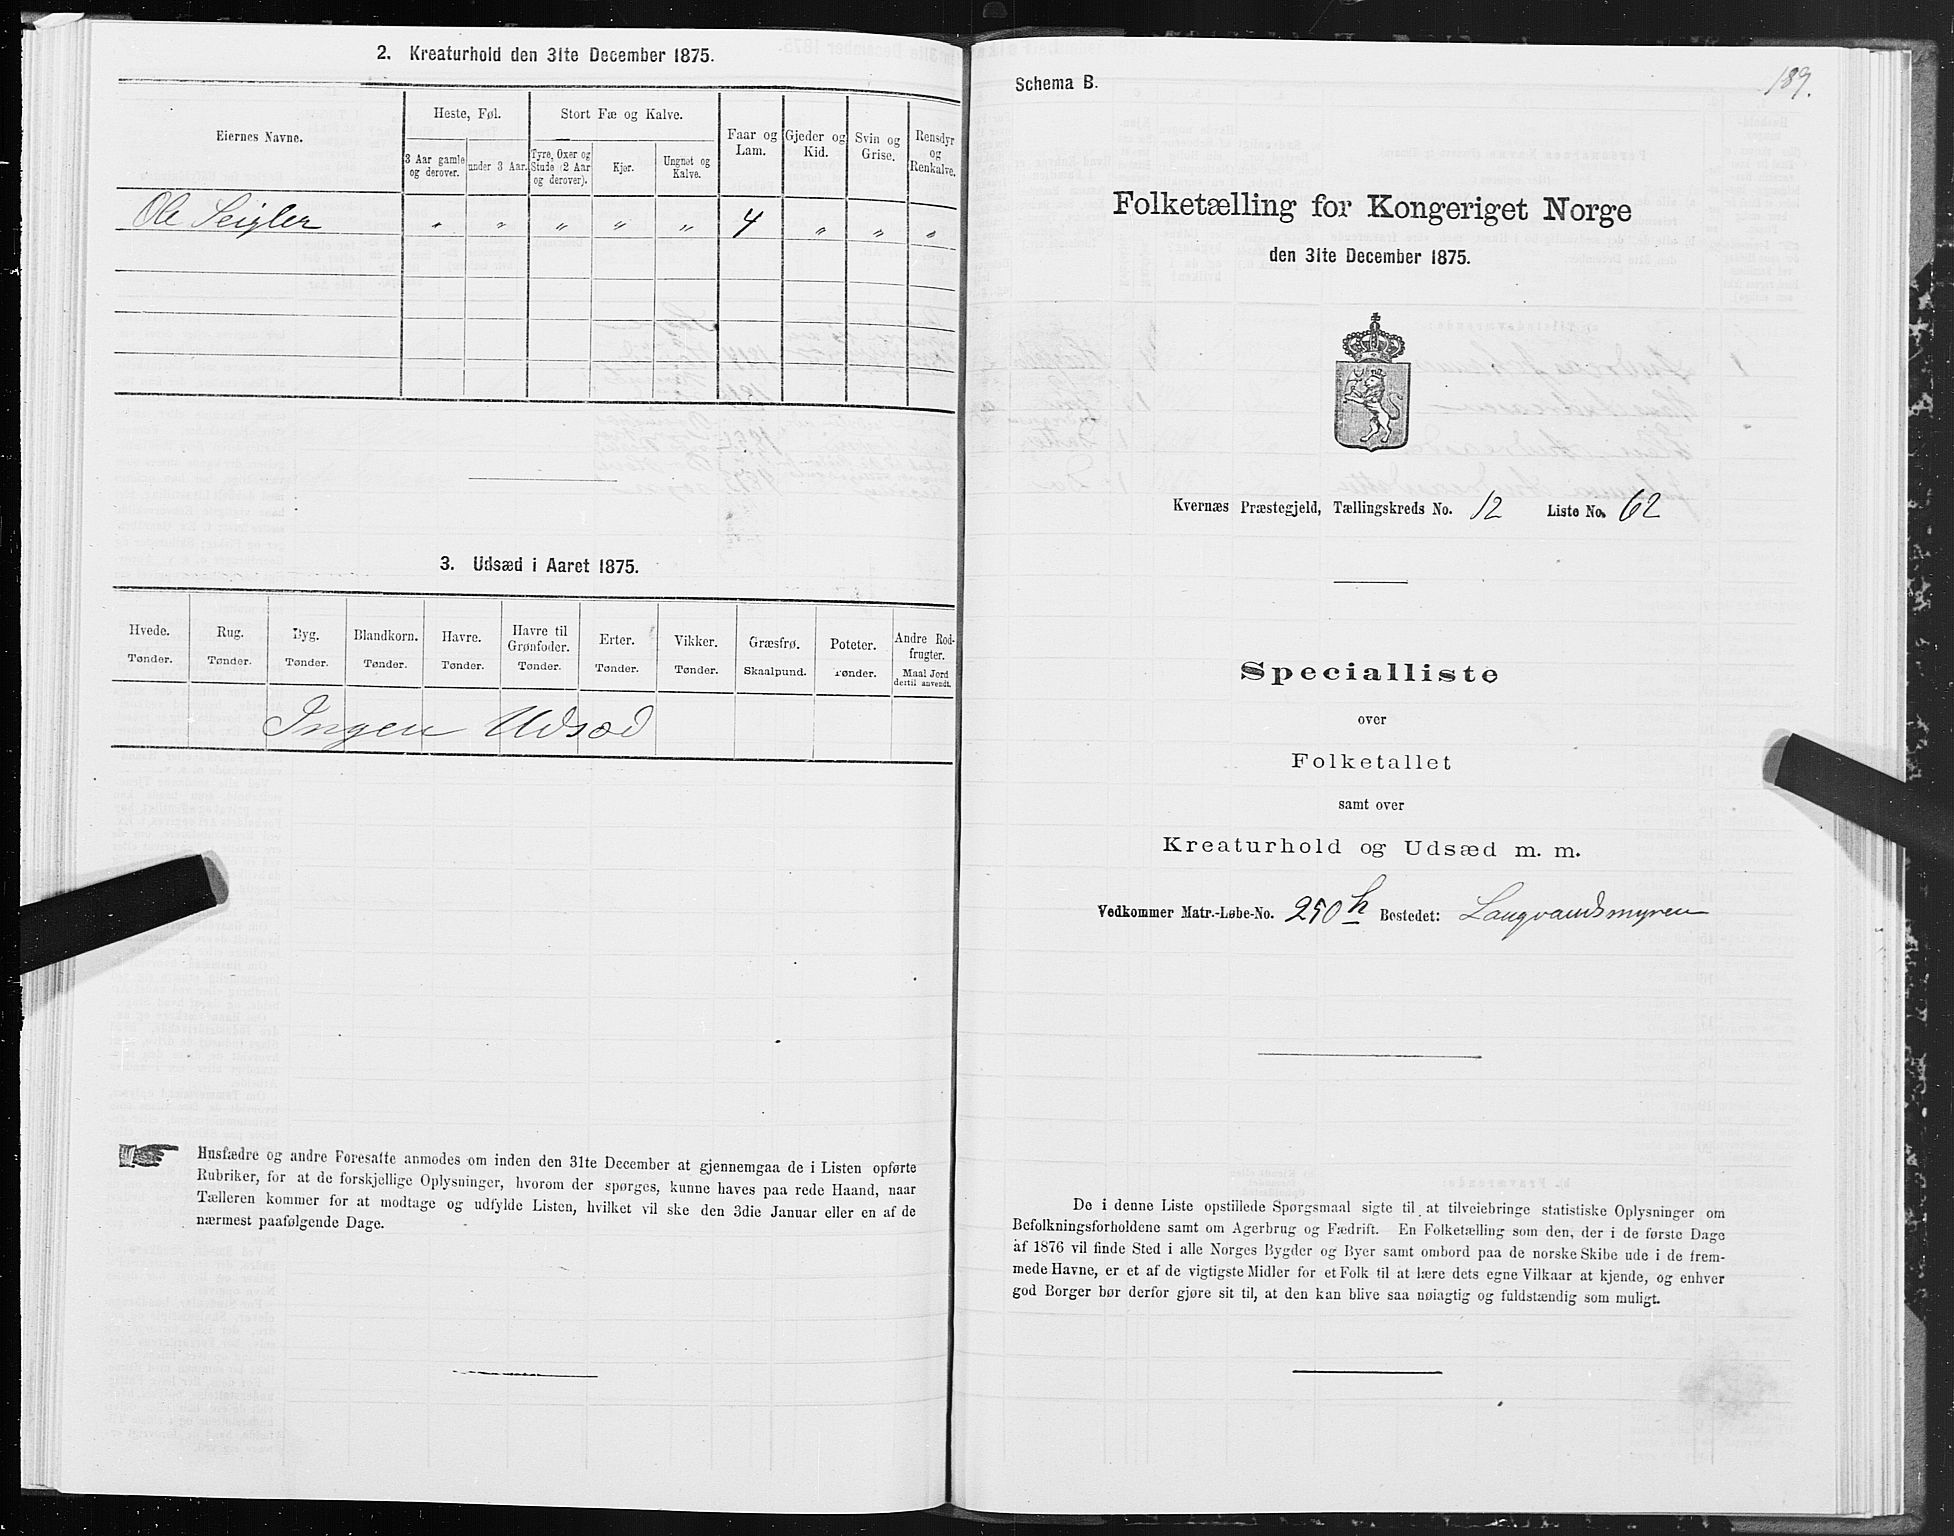 2. Kreaturhold den 31te December 1875.
Eiernes Navne.
Heste, Føl.
Stort Fæ og Kalve.
Faar og Lam.
Gjeder og Kid.
Svin og Grise.
Rensdyr og Renkalve.
3 Aar gamle og derover.
under 3 Aar.
Tyre, Oxer og Stude (2 Aar og derover).
Kjør.
Ungnøt og Kalve.
Ole Seigler " " " " " 4 " " "
3. Udsæd i Aaret 1875.
Hvede. Rug. Byg. Blandkorn. Havre. Havre til Grønfoder. Erter. Vikker. Græsfrø. Poteter. Andre Rodfrugter.
Tønder. Tønder. Tønder. Tønder. Tønder. Tønder. Tønder. Tønder. Skaalpund. Tønder. Maal Jord dertil anvendt.
Ingen Udsæd
Husfædre og andre Foresatte anmodes om inden den 31te December at gjennemgaa de i Listen opførte
Rubriker, for at de forskjellige Oplysninger, hvorom der spørges, kunne haves paa rede Haand, naar
Tælleren kommer for at modtage og udfylde Listen, hvilket vil ske den 3die Januar eller en af de
nærmest paafølgende Dage.
Schema B.
189.
Folketælling for Kongeriget Norge
den 31te December 1875.
Kvernæs Præstegjeld, Tællingskreds No. 12 Liste No. 62
Specialliste
over
Folketallet
samt over
Kreaturhold og Udsæd m. m.
Vedkommer Matr.-Løbe-No. 250h Bostedet: Langvandsmyren
De i denne Liste opstillede Spørgsmaal sigte til at tilveiebringe statistiske Oplysninger om
Befolkningsforholdene samt om Agerbrug og Fædrift. En Folketælling som den, der i de første Dage
af 1876 vil finde Sted i alle Norges Bygder og Byer samt ombord paa de norske Skibe ude i de frem-
mede Havne, er et af de vigtigste Midler for et Folk til at lære dets egne Vilkaar at kjende, og enhver
god Borger bør derfor gjøre sit til, at den kan blive saa nøiagtig og fuldstændig som muligt.